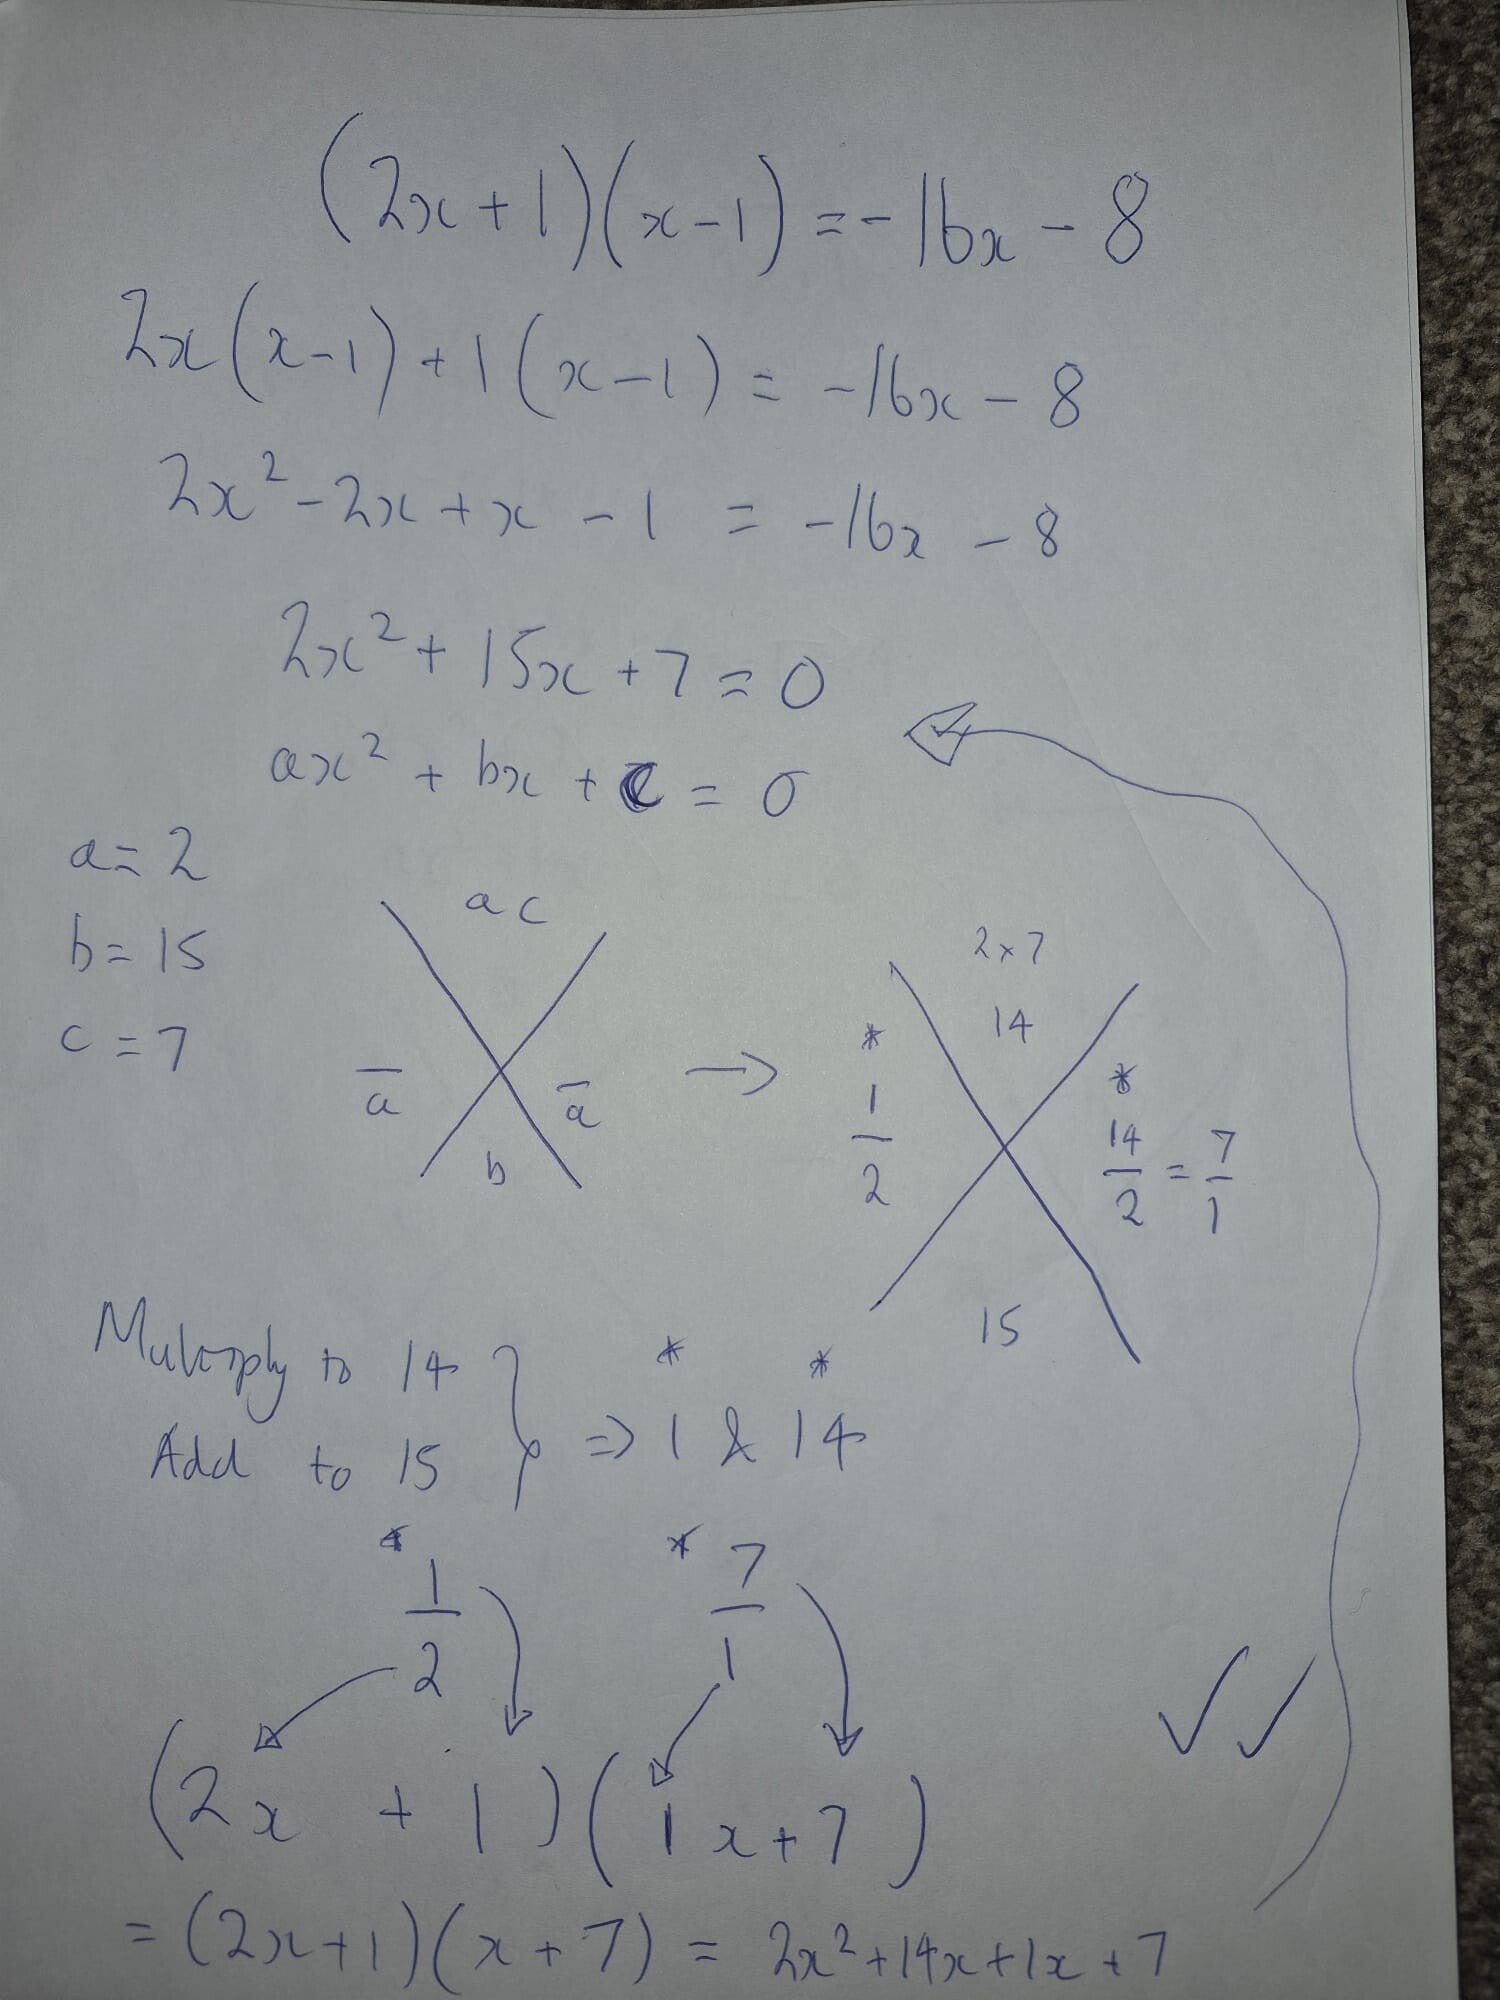 (2x+1)(x-1) = -16x - 8
2x(x-1) + 1(x-1) = -16x - 8
2x² - 2x + x - 1 = -16x - 8
2x² + 15x + 7 = 0
ax² + bx + c = 0
a = 2
b = 15
c = 7
ac
—/a
—/a
b
→
2 x 7
14
* 1/2
* 14/2 = 7/1
15
Multiply to 14
Add to 15
} ⇒ * 1 & * 14
* 1/2
* 7/1
(2x + 1)(1x + 7) ✓✓
= (2x+1)(x+7) = 2x² + 14x + 1x + 7